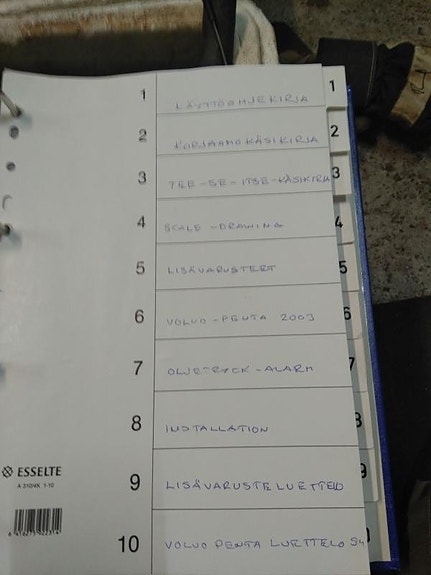 1 KÄYTTÖOHJEKIRJA 1
2 KORJAAMOKÄSIKIRJA 2
3 TEE-SE-ITSE-KÄSIKIRJA 3
4 SCALE-DRAWING 4
5 LISÄVARUSTERT 5
6 VOLVO-PENTA 2003 6
7 OLJETRYCK-ALARM 7
8 INSTALLATION 8
ESSELTE
A 310/4K 1-10
9 LISÄVARUSTELUETTELO 9
10 VOLVO PENTA LUETTELO